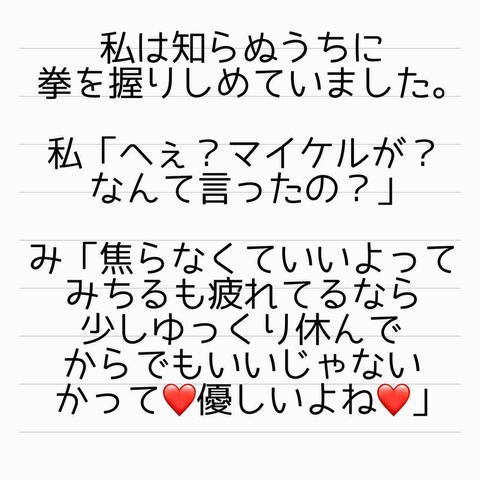 私は知らぬうちに
拳を握りしめていました。
私「へぇ？マイケルが？
なんて言ったの？」
み「焦らなくていいよって
みちるも疲れてるなら
少しゆっくり休んで
からでもいいじゃない
かって❤️優しいよね❤️」